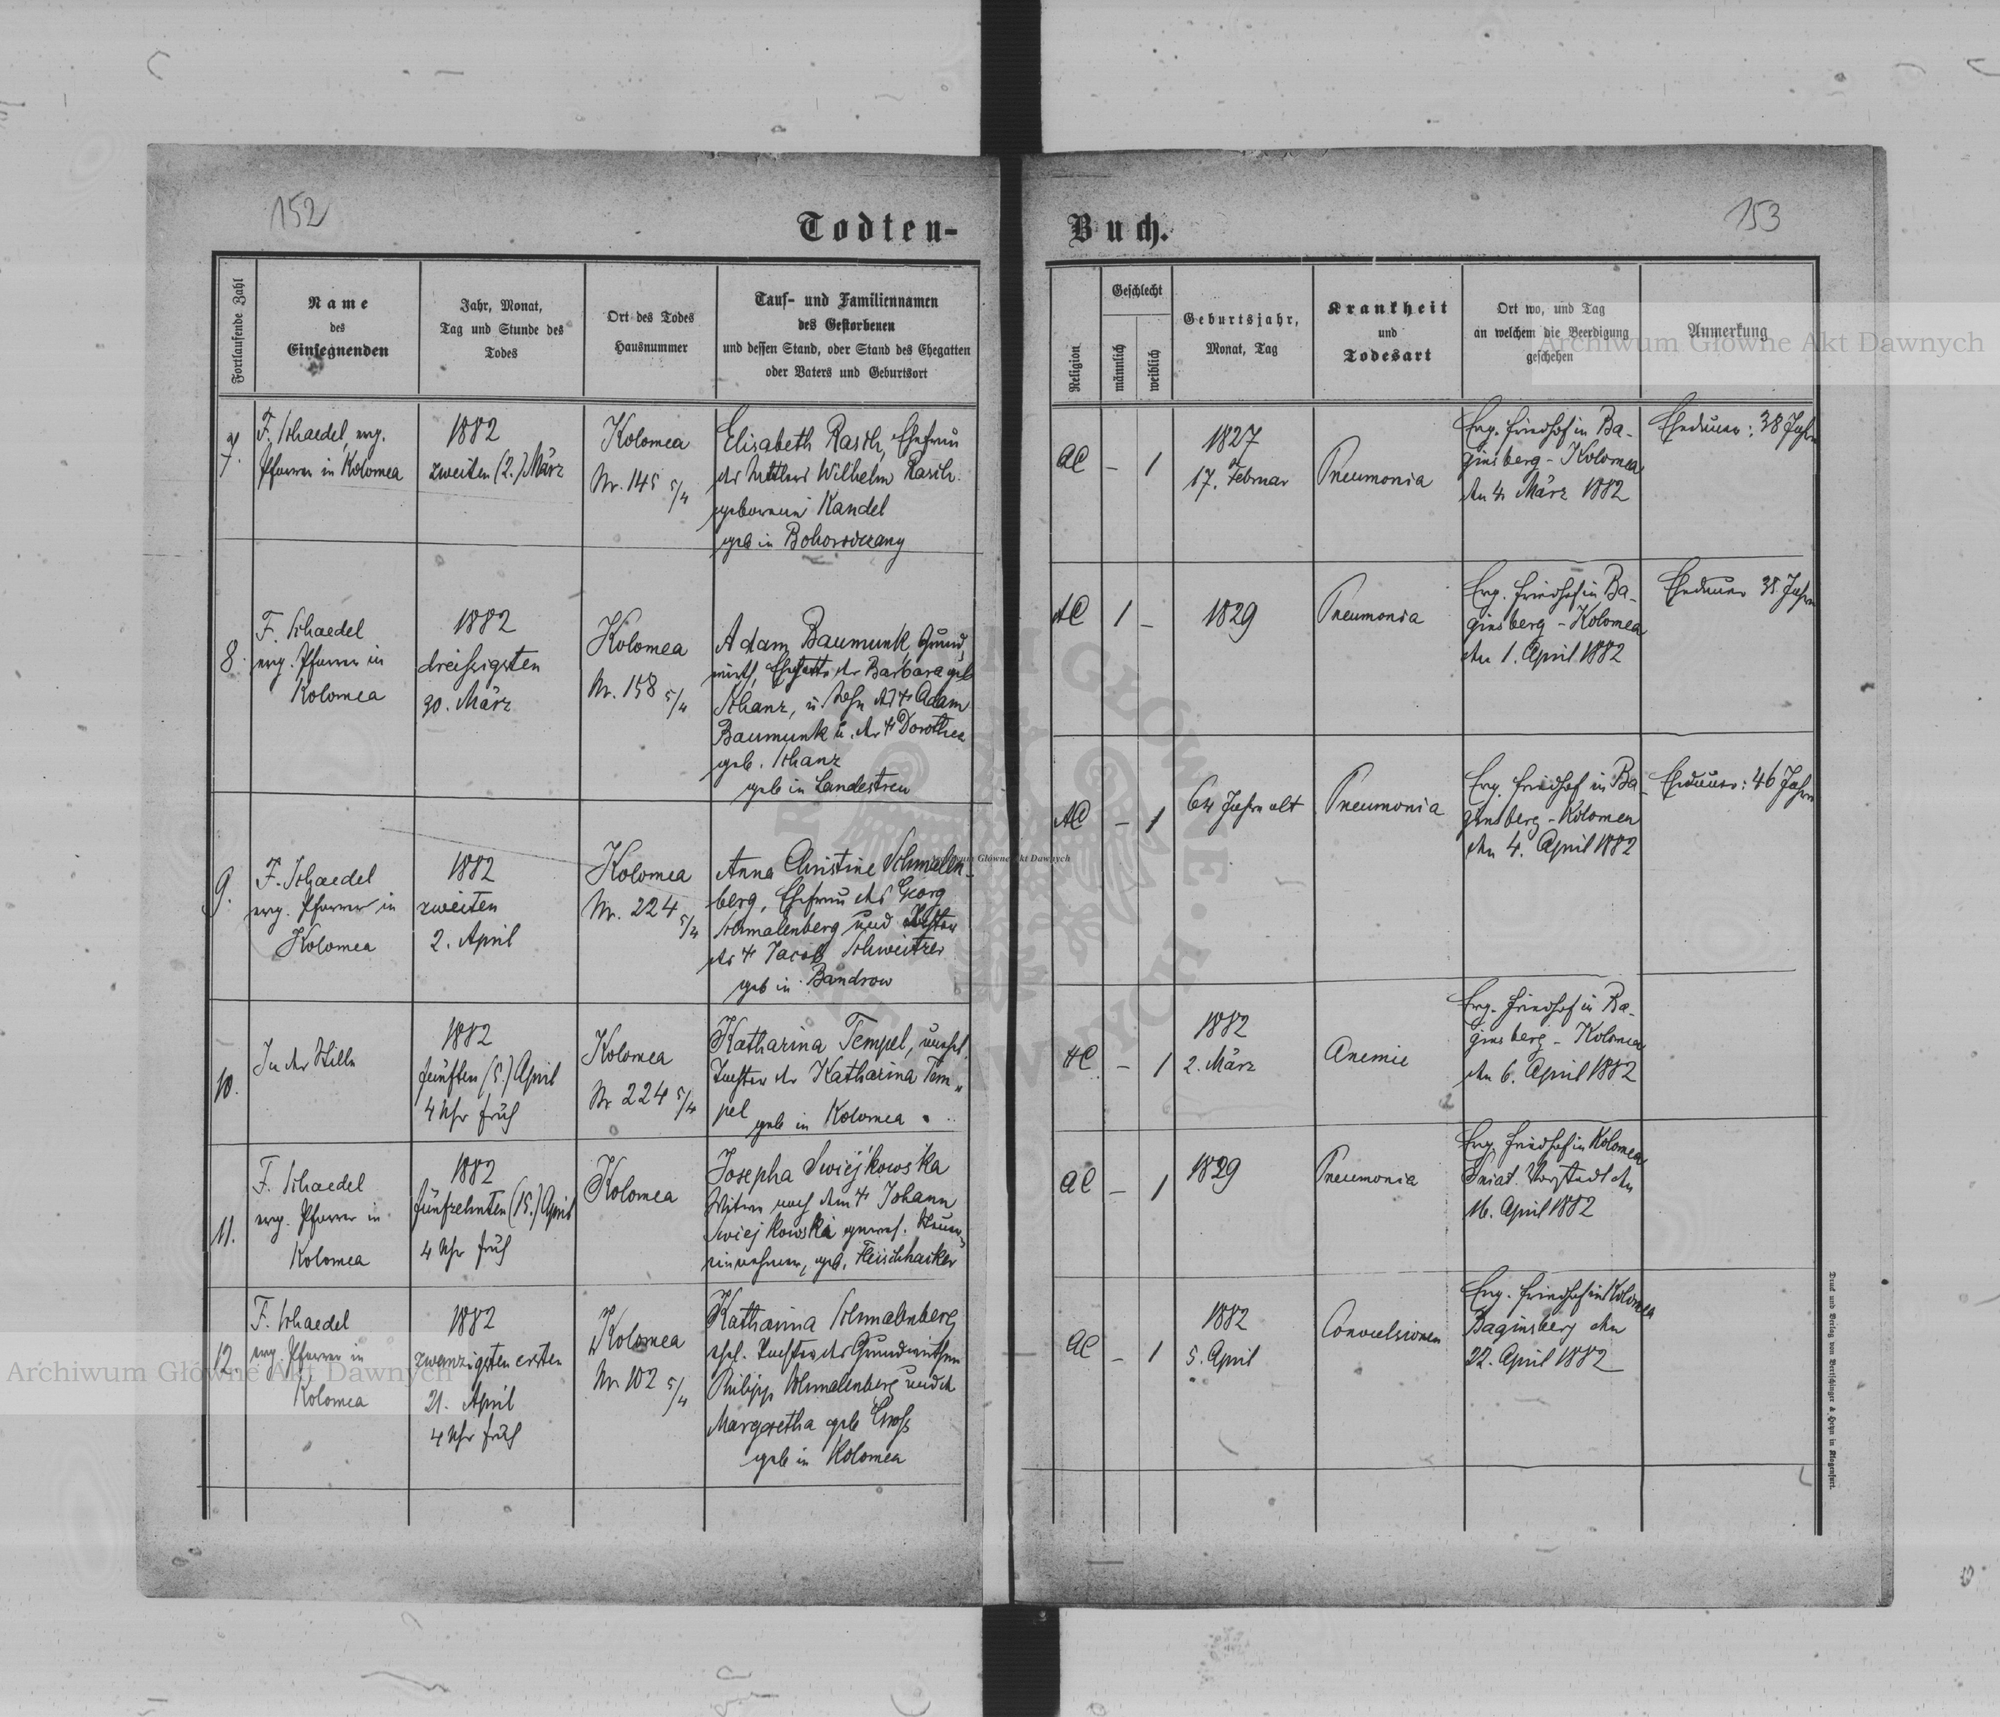 152
Todten-
Fortlaufende Zahl
Name
des
Einsegnenden
Jahr, Monat,
Tag und Stunde des
Todes
Ort des Todes
Hausnummer
Tauf- und Familiennamen
des Gestorbenen
und dessen Stand, oder Stand des Ehegatten
oder Vaters und Geburtsort
7.
F. Schaedel, evg.
Pfarrer in Kolomea
1882
zweiten (2.) März
Kolomea
Nr. 145 5/4
Elisabeth Rasch, Ehefrau
des Wilhelm Rasch
geborenen Kandel
geb in Bohorodczany
8.
F. Schaedel
evg. Pfarrer in
Kolomea
1882
dreiszigsten
30. März
Kolomea
Nr. 158 5/4
Adam Baumunk, Grund,
wirth, Ehegatte der Barbara geb
Schanz, u. Sohn des + Adam
Baumunk u. der + Dorothea
geb. Schanz
geb in Landestreu
9.
F. Schaedel
evg. Pfarrer in
Kolomea
1882
zweiten
2. April
Kolomea
Nr. 224 5/4
Anna Christine Schmalen-
berg, Ehefrau des Georg
Schmalenberg und Tochter
des + Jacob Schweitzer
geb in Bandrow
10.
In der Stille
1882
fünften (5.) April
4 Uhr früh
Kolomea
Nr 224 5/4
Katharina Tempel, unehl.
Tochter der Katharina Tem-
pel
geb in Kolomea
11.
F. Schaedel
evg. Pfarrer in
Kolomea
1882
fünfzehnten (15.) April
4 Uhr früh
Kolomea
Josepha Swiejkowska
Witwe nach dem + Johann
Swiejkowski gewes. Steuer-
einnehmer, geb. Fleischhacker
12.
F. Schaedel
evg. Pfarrer in
Kolomea
1882
zwanzigsten ersten
21. April
4 Uhr früh
Kolomea
Nr 102 5/4
Katharina Schmalenberg
ehel. Tochter des Grundwirthen
Philipp Schmalenberg und der
Margaretha geb Gross
geb in Kolomea
Buch.
153
Religion
Geschlecht
männlich
weiblich
Geburtsjahr,
Monat, Tag
Krankheit
und
Todesart
Ort wo, und Tag
an welchem die Beerdigung
geschehen
Anmerkung
AC
-
1
1827
17. Februar
Pneumonia
Evg. Friedhof in Ba-
ginsberg - Kolomea
den 4. März 1882
Ehedauer: 38 Jahre
AC
1
-
1829
Pneumonia
Evg. Friedhof in Ba-
ginsberg - Kolomea
den 1. April 1882
Ehedauer 35 Jahre
AC
-
1
64 Jahre alt
Pneumonia
Evg. Friedhof in Ba-
ginsberg - Kolomea
den 4. April 1882
Ehedauer: 46 Jahre
AC
-
1
1882
2. März
Anemie
Evg. Friedhof in Ba-
ginsberg - Kolomea
den 6. April 1882
AC
-
1
1829
Pneumonia
Evg. Friedhof in Kolomea
Sniat. Vorstadt den
16. April 1882
AC
-
1
1882
5. April
Convulsionen
Evg. Friedhof in Kolomea
Baginsberg den
22. April 1882
Druck und Verlag von Bertschinger & Heyn in Klagenfurt.
Archiwum Główne Akt Dawnych
Archiwum Główne Akt Dawnych
Archiwum Główne Akt Dawnych